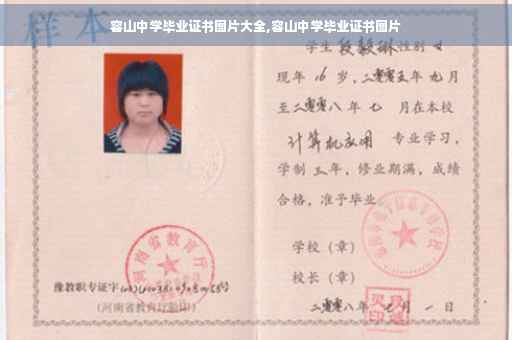 容山中学毕业证书图片大全,容山中学毕业证书图片
样本
学生 段毅琳 性别 女
现年 16 岁，二零零五年 九月
至二零零八年 七 月在本校
计算机应用 专业学习，
学制 三年，修业期满，成绩
合格，准予毕业
学校（章）
校长（章）
二零零八年 七月 一 日
河南省教育厅
豫教职专证字
（河南省教育厅验印）